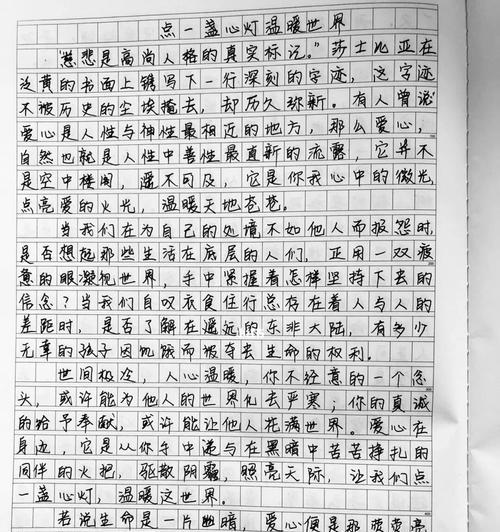 点一盏心灯温暖世界
“慈悲是高尚人格的真实标记。”莎士比亚在
泛黄的书面上镌写下一行深刻的字迹，这字迹
不被历史的尘埃掩去，却历久弥新。有人曾说
爱心是人性与神性最相近的地方，那么爱心，
自然也就是人性中善性最直新的流露，它并不
是空中楼阁，遥不可及，它是你我心中的微光，
点亮爱的火光，温暖天地苍苍。
当我们在为自己的处境不如他人而报怨时，
是否想起那些生活在底层的人们，正用一双疲
惫的眼凝视世界，手中紧握着怎样坚持下去的
信念？当我们自叹衣食住行总存在着人与人的
差距时，是否了解在遥远的东非大陆，有多少
无辜的孩子因饥饿而被夺去生命的权利。
世间极冷，人心温暖，你不经意的一个念
头，或许能为他人的世界化去严寒；你的真诚
的给予奉献，或许能让他人花满世界。爱心在
身边，它是从你手中递与在黑暗中苦苦挣扎的
同伴的火把，驱散阴霾，照亮天际，让我们点
一盏心灯，温暖这世界。
若说生命是一片幽暗，爱心便是那